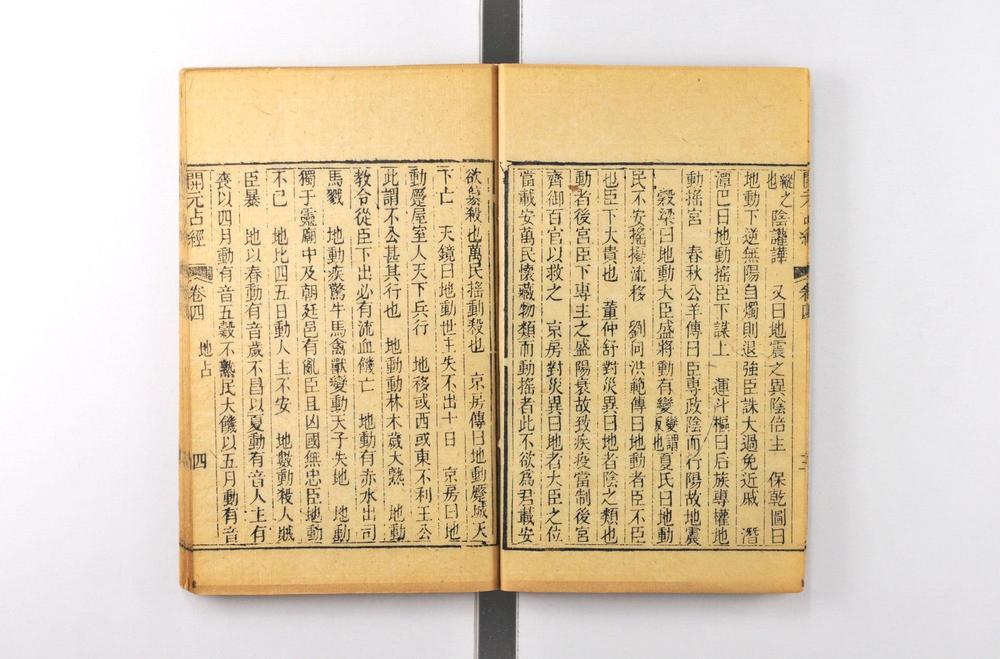 縱之陰讙譁　又曰地震之異陰倍主　保乾圖曰
也
地動下逆無陽自燭則退強臣誅大過免近戚　潛
潭巴曰地動搖臣下謀上　運斗樞曰后族專權地
動搖宮　春秋公羊傳曰臣專政陰而行陽故地震
穀梁曰地動大臣盛將動有變變謂叛也夏氏曰地動
民不安搖擾流移　劉向洪範傳曰地動者臣不臣
也臣下大貴也　董仲舒對災異曰地者陰之類也
動者後宮臣下專主之盛陽衰故致疾疫當制後宮
齊御百官以救之　京房對災異曰地者大臣之位
當載安萬民懷藏物類而動搖者此不欲為君載安
欲篡殺也萬民搖動殺也　京房傳曰地動壓城天
下亡　天鏡曰地動世主失不出十日　京房曰地
動壓屋室人天下兵行　地移或西或東不利王公
此謂不公甚其行也　地動動林木歲大熟　地動
教令從臣下出必有流血饑亡　地動有赤水出司
馬戮　地動疾驚牛馬禽獸變動天子失地　地動
獨于靈廟中及朝廷邑有亂臣且凶國無忠臣地動
不已　地比四五日動人主不安　地數動殺人賊
臣暴　地以春動有音歲不昌以夏動有音人主有
喪以四月動有音五穀不熟民大饑以五月動有音
開元占經
卷四
地占
四